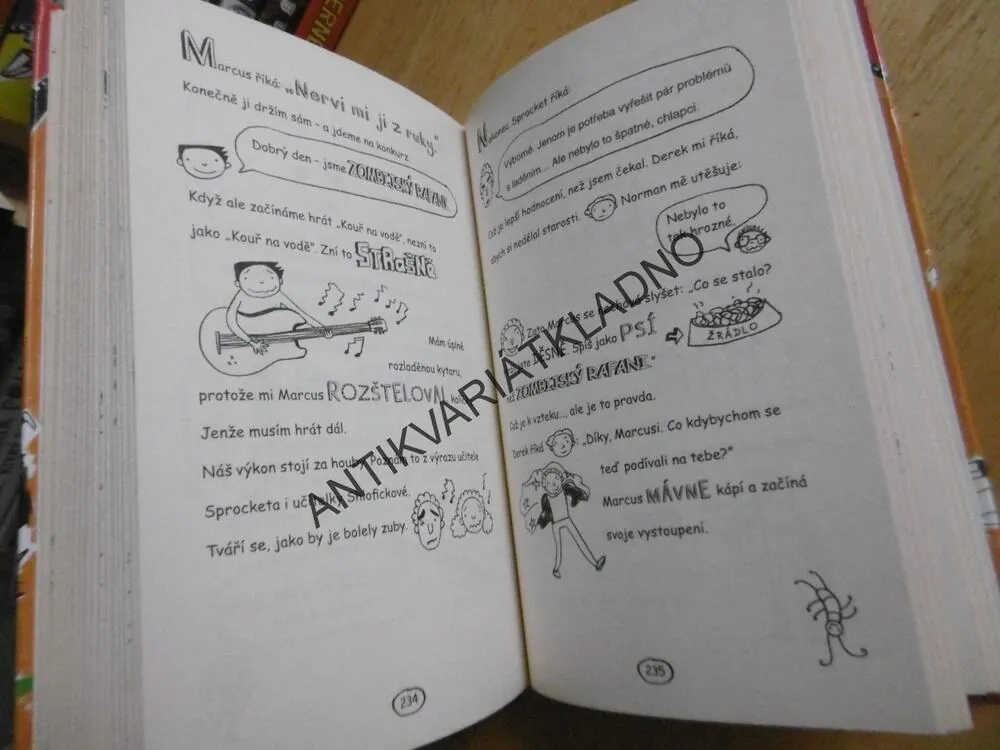 Marcus říká: „Nervi mi ji z ruky."
Konečně ji držím sám – a jdeme na konkurz
Dobrý den – jsme ZOMBEJSKÝ RAFANI.
Když ale začínáme hrát „Kouř na vodě", nezní to
jako „Kouř na vodě". Zní to STRAŠNĚ
Mám úplně
rozladěnou kytaru,
protože mi Marcus ROZŠTELOVAL
Jenže musím hrát dál.
Náš výkon stojí za houby. Poznám to z výrazu učitele
Sprocketa i učitelky Šňofickové.
Tváří se, jako by je bolely zuby.
234
Nakonec Sprocket říká:
Výborně. Jenom je potřeba vyřešit pár problémů
s laděním... Ale nebylo to špatné, chlapci.
Což je lepší hodnocení, než jsem čekal. Derek mi říká,
abych si nedělal starosti. Norman mě utěšuje:
Nebylo to
tak hrozné.
Zato Marcus se nechává slyšet: „Co se stalo?
DĚSNĚ. Spíš jako PSÍ
ŽRÁDLO
než ZOMBEJSKÝ RAFANI."
Což je k vzteku..., ale je to pravda.
Derek říká: „Díky, Marcusi. Co kdybychom se
teď podívali na tebe?"
Marcus MÁVNE kápí a začíná
svoje vystoupení.
235
ANTIKVARIÁTKLADNO